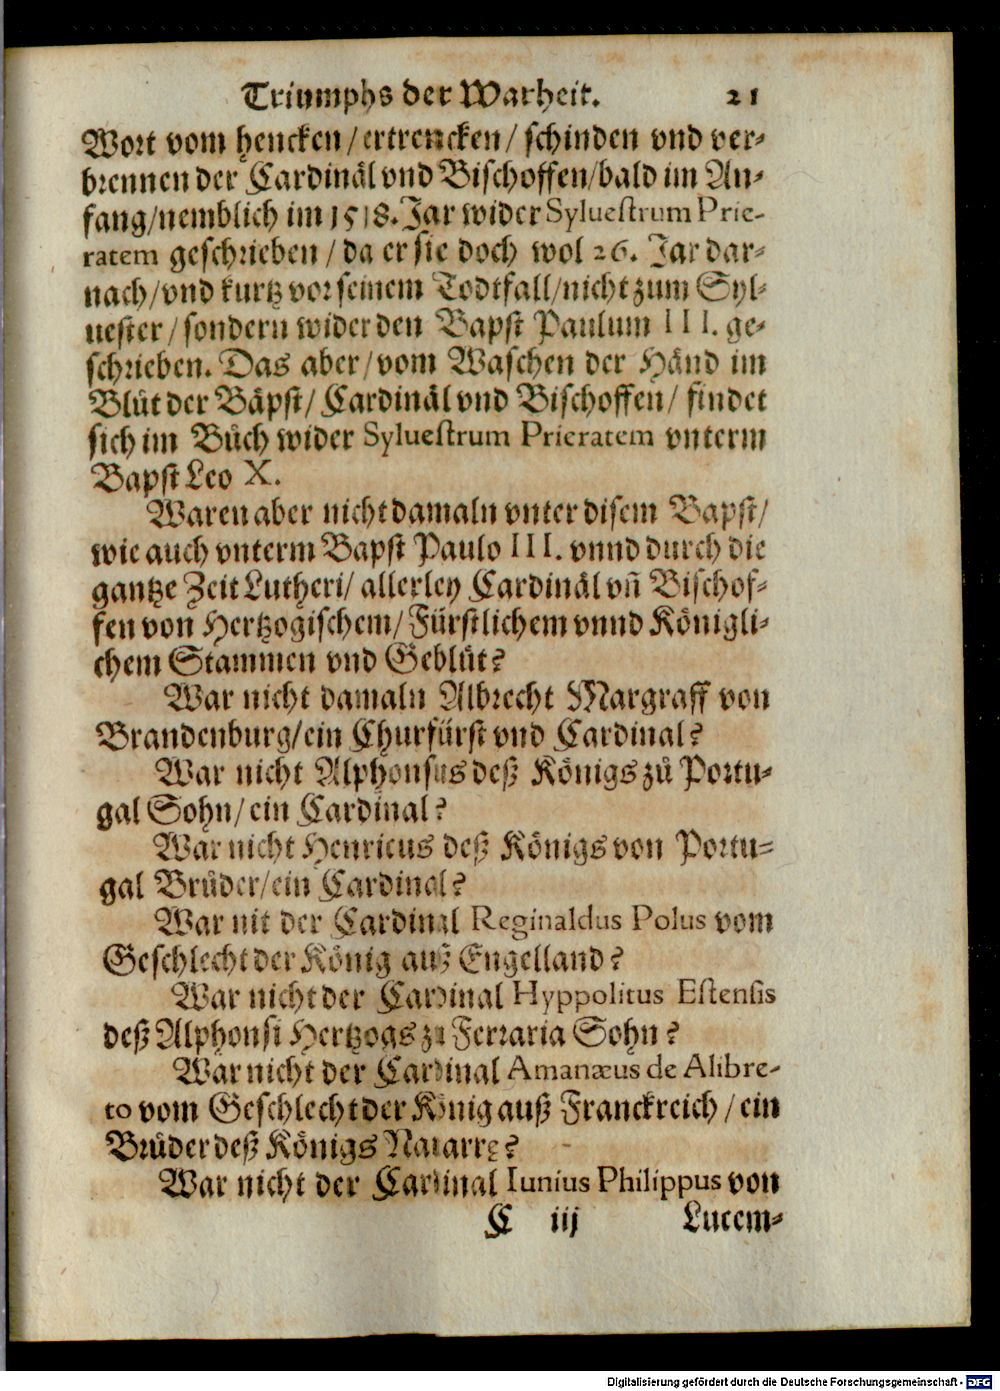 Triumphs der Warheit. 21
Wort vom hencken/ertrencken/schinden vnd ver-
brennen der Cardinäl vnd Bischoffen/bald im An-
fang/nemblich im 1518. Jar wider Syluestrum Prie-
ratem geschrieben/da er sie doch wol 26. Jar dar-
nach/vnd kurtz vor seinem Todtfall/nicht zum Syl-
uester/sondern wider den Bapst Paulum III. ge-
schrieben. Das aber/vom Waschen der Händ im
Blůt der Bäpst/Cardinäl vnd Bischoffen/findet
sich im Bůch wider Syluestrum Prieratem vnterm
Bapst Leo X.
Waren aber nicht damaln vnter disem Bapst/
wie auch vnterm Bapst Paulo III. vnnd durch die
gantze Zeit Lutheri/allerley Cardinäl vñ Bischof-
fen von Hertzogischem/Fürstlichem vnnd Königli-
chem Stammen vnd Geblůt?
War nicht damaln Albrecht Margraff von
Brandenburg/ein Churfürst vnd Cardinal?
War nicht Alphonsus deß Königs zů Portu-
gal Sohn/ein Cardinal?
War nicht Henricus deß Königs von Portu-
gal Brůder/ein Cardinal?
War nit der Cardinal Reginaldus Polus vom
Geschlecht der König auß Engelland?
War nicht der Cardinal Hyppolitus Estensis
deß Alphonsi Hertzogs zu Ferraria Sohn?
War nicht der Cardinal Amanæus de Alibre-
to vom Geschlecht der König auß Franckreich/ein
Brůder deß Königs Nauarre?
War nicht der Cardinal Iunius Philippus von
C iij Lucem-
Digitalisierung gefördert durch die Deutsche Forschungsgemeinschaft - DFG